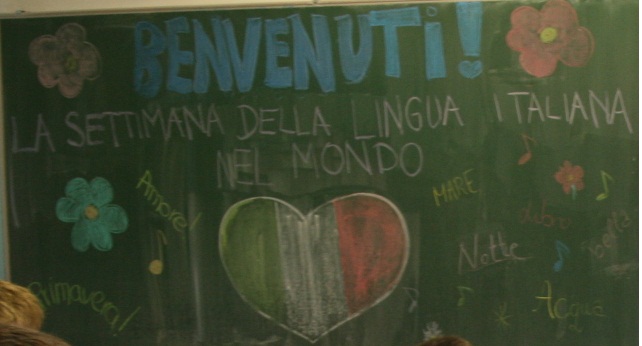 BENVENUTi!
LA SETTIMANA DELLA LINGUA ITALIANA
NEL MONDO
Amore!
MARE
Notte
Primavera!
Acqua